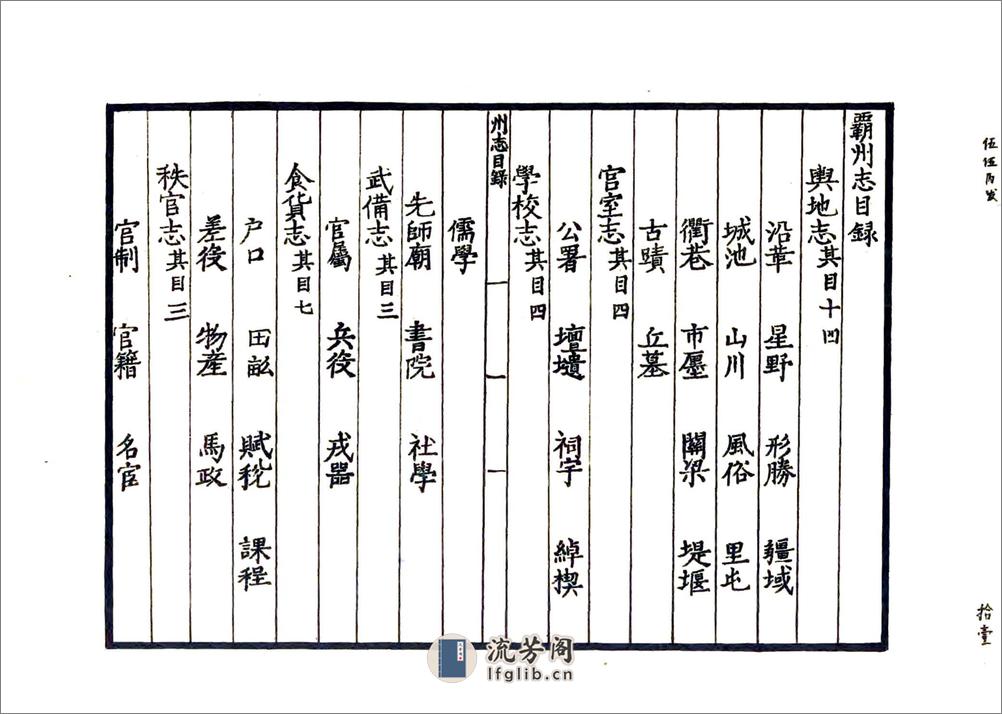 霸州志目録
輿地志其目十四
沿革 星野 形勝 疆域
城池 山川 風俗 里屯
衢巷 市廛 關梁 堤堰
古蹟 丘墓
宫室志其目四
公署 壇壝 祠宇 綽楔
學校志其目四
州志目録 一 一 一
儒學
先師廟 書院 社學
武備志其目三
官屬 兵役 戎器
食貨志其目七
户口 田畝 賦稅 課程
差役 物産 馬政
秩官志其目三
官制 官籍 名宦
拾壹
流芳阁
lfglib.cn